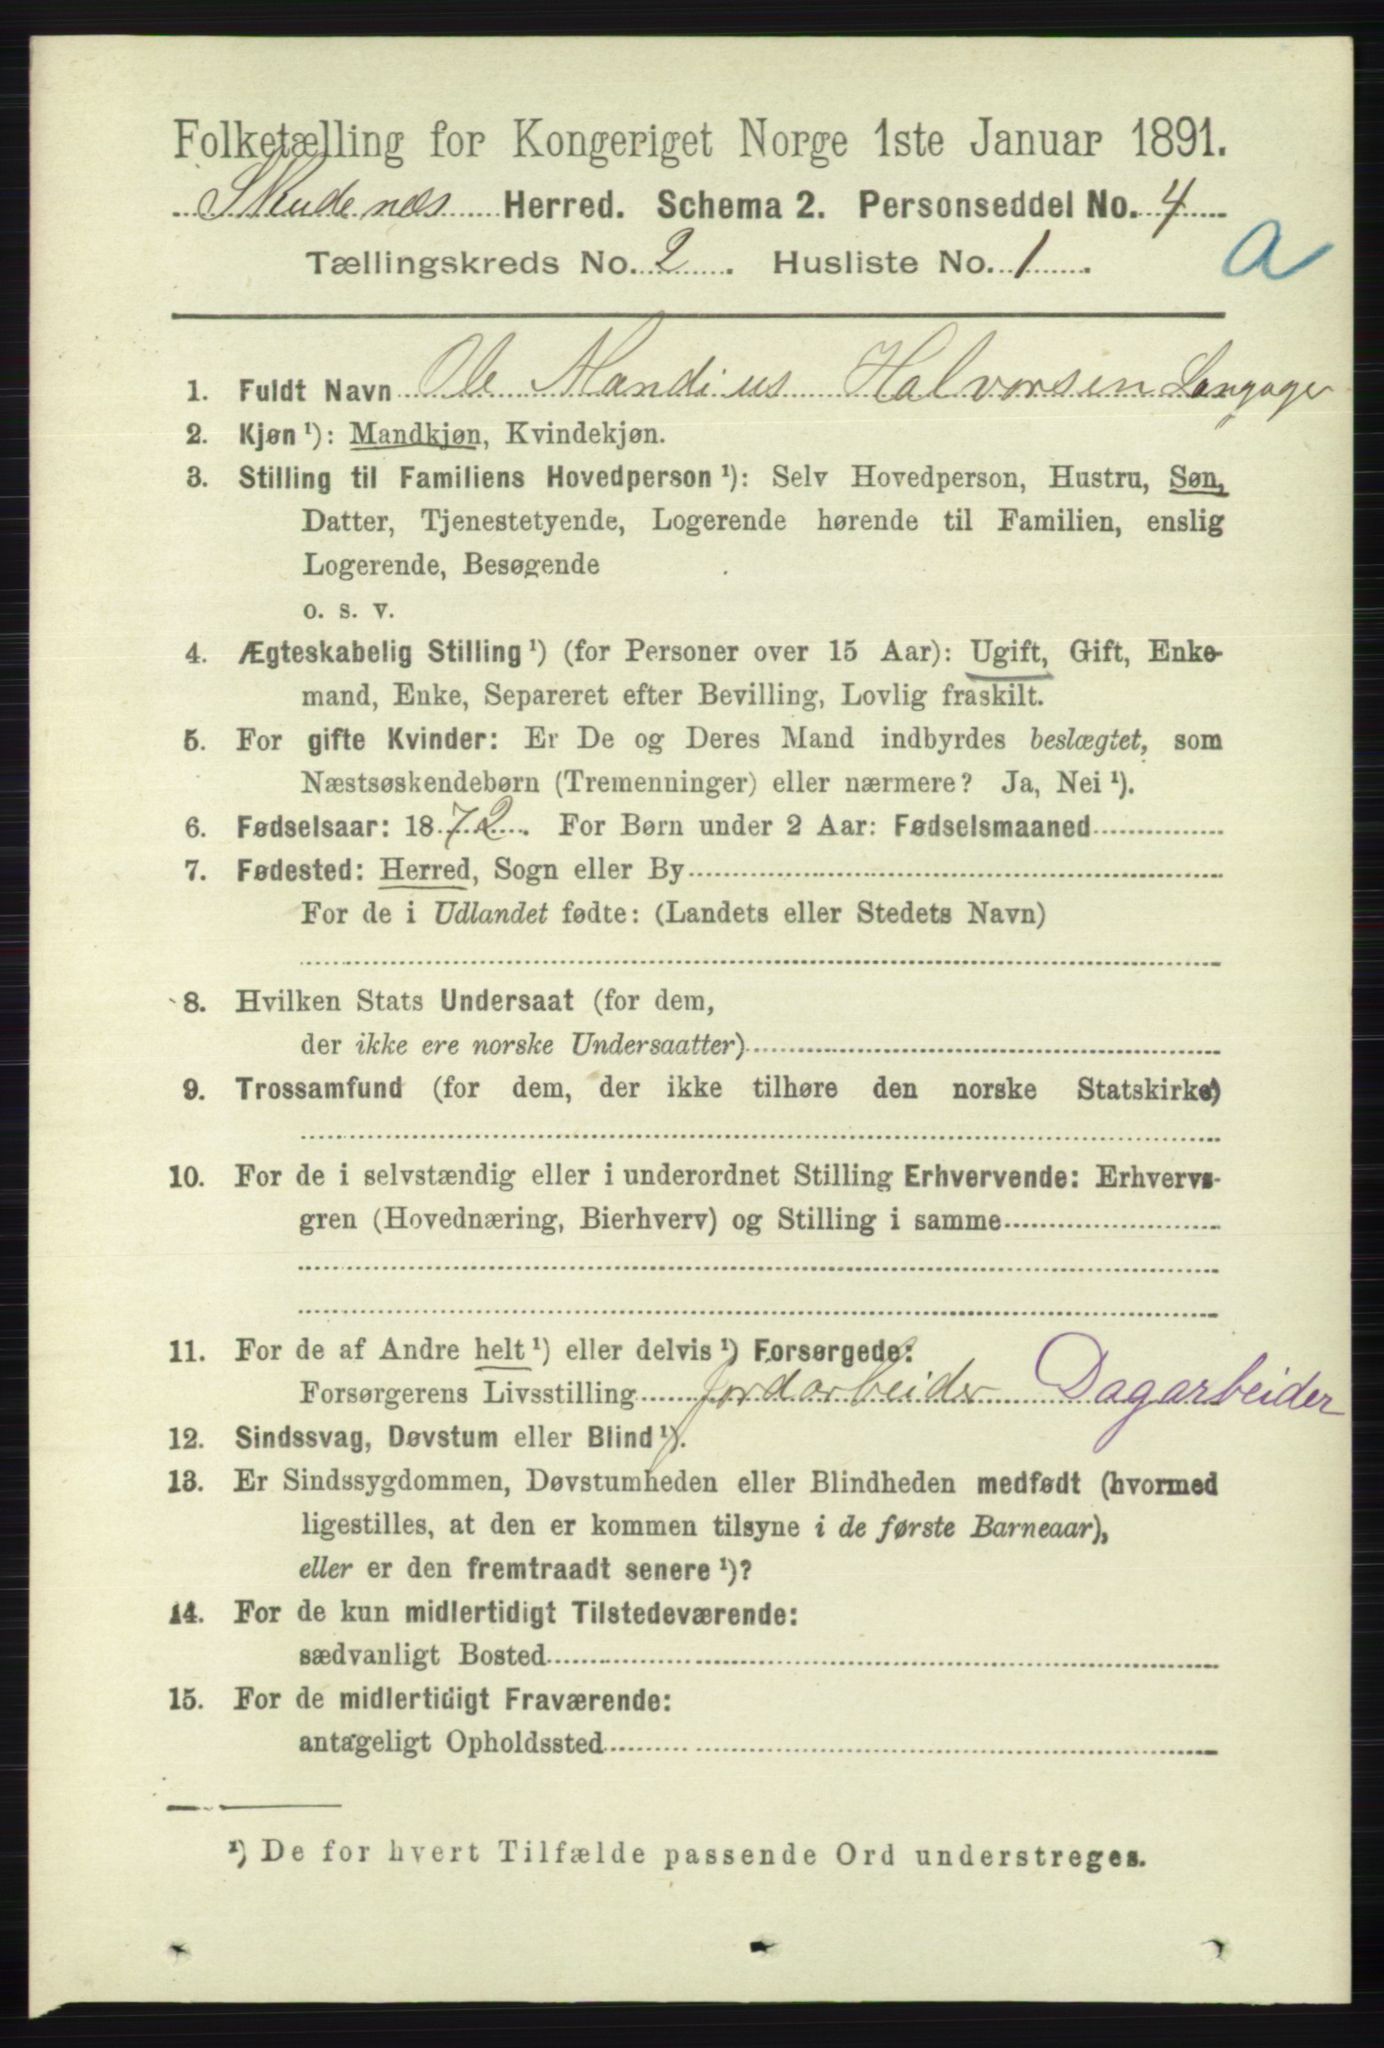 Folketælling for Kongeriget Norge 1ste Januar 1891.
Skudenæs Herred. Schema 2. Personseddel No. 4
Tællingskreds No. 2. Husliste No. 1. a
1. Fuldt Navn Ole Mandius Halvorsen Langager
2. Kjøn ¹): Mandkjøn, Kvindekjøn.
3. Stilling til Familiens Hovedperson ¹): Selv Hovedperson, Hustru, Søn,
Datter, Tjenestetyende, Logerende hørende til Familien, enslig
Logerende, Besøgende
o. s. v.
4. Ægteskabelig Stilling ¹) (for Personer over 15 Aar): Ugift, Gift, Enke-
mand, Enke, Separeret efter Bevilling, Lovlig fraskilt.
5. For gifte Kvinder: Er De og Deres Mand indbyrdes beslægtet, som
Næstsøskendebørn (Tremenninger) eller nærmere? Ja, Nei ¹).
6. Fødselsaar: 1872. For Børn under 2 Aar: Fødselsmaaned
7. Fødested: Herred, Sogn eller By
For de i Udlandet fødte: (Landets eller Stedets Navn)
8. Hvilken Stats Undersaat (for dem,
der ikke ere norske Undersaatter)
9. Trossamfund (for dem, der ikke tilhøre den norske Statskirke)
10. For de i selvstændig eller i underordnet Stilling Erhvervende: Erhvervs-
gren (Hovednæring, Bierhverv) og Stilling i samme
11. For de af Andre helt ¹) eller delvis ¹) Forsørgede:
Forsørgerens Livsstilling Jordarbeider Dagarbeider
12. Sindssvag, Døvstum eller Blind ¹).
13. Er Sindssygdommen, Døvstumheden eller Blindheden medfødt (hvormed
ligestilles, at den er kommen tilsyne i de første Barneaar),
eller er den fremtraadt senere ¹)?
14. For de kun midlertidigt Tilstedeværende:
sædvanligt Bosted
15. For de midlertidigt Fraværende:
antageligt Opholdssted
¹) De for hvert Tilfælde passende Ord understreges.